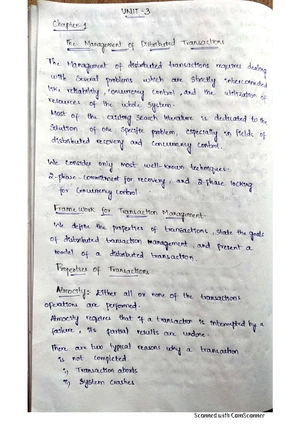 UNIT - 3
Chapter-1
The Management of Distributed Transactions
The Management of distributed transactions requires dealing
with several problems which are strictly interconnected
like reliability, concurrency control, and the utilization of
resources of the whole system.
Most of the existing search literature is dedicated to the
solution of one specific problem, especially in fields of
distributed recovery and concurrency control.
We consider only most well-known techniques:
2-phase-commitment for recovery, and 2-phase locking
for concurrency control
Framework for Transaction Management:
We define the properties of transactions, state the goals
of distributed transaction management, and present a
model of a distributed transaction.
Properties of Transactions
Atmocity: Either all or none of the transactions
operations are performed.
Atmocity requires that if a transaction is interrupted by a
failure, its partial results are undone.
There are two typical reasons why a transaction
is not completed:
i, Transaction aborts
ii, System crashes
Scanned with CamScanner